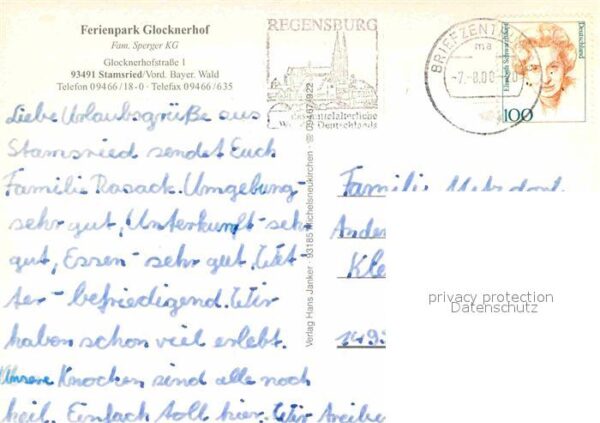 Ferienpark Glocknerhof
Fam. Sperger KG
Glocknerhofstraße 1
93491 Stamsried/Vord. Bayer. Wald
Telefon 09466/18-0 · Telefax 09466/635
REGENSBURG
mittelalterliche
Deutschlands
BRIEFZENTRUM
ma
Elisabeth Schwarzhaupt
Deutschland
100
Liebe Urlaubsgrüße aus
Stamsried sendet Euch
Familie Rasack. Umgebung-
sehr gut, Unterkunft- sehr
gut, Essen- sehr gut, Wet-
ter- befriedigend. Wir
haben schon viel erlebt.
Unsere Knochen sind alle noch
heil. Einfach toll hier. Wir
Verlag Hans Janker · 93185 Michelsneukirchen · ☎ 09467/922
Familie
Kle
privacy protection
Datenschutz